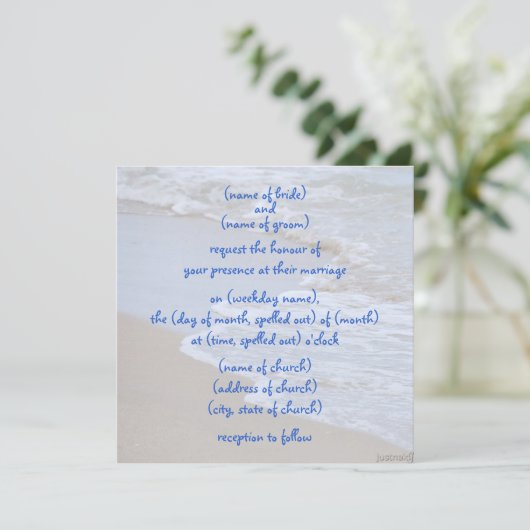 (name of bride)
and
(name of groom)
request the honour of
your presence at their marriage
on (weekday name),
the (day of month, spelled out) of (month)
at (time, spelled out) o'clock
(name of church)
(address of church)
(city, state of church)
reception to follow